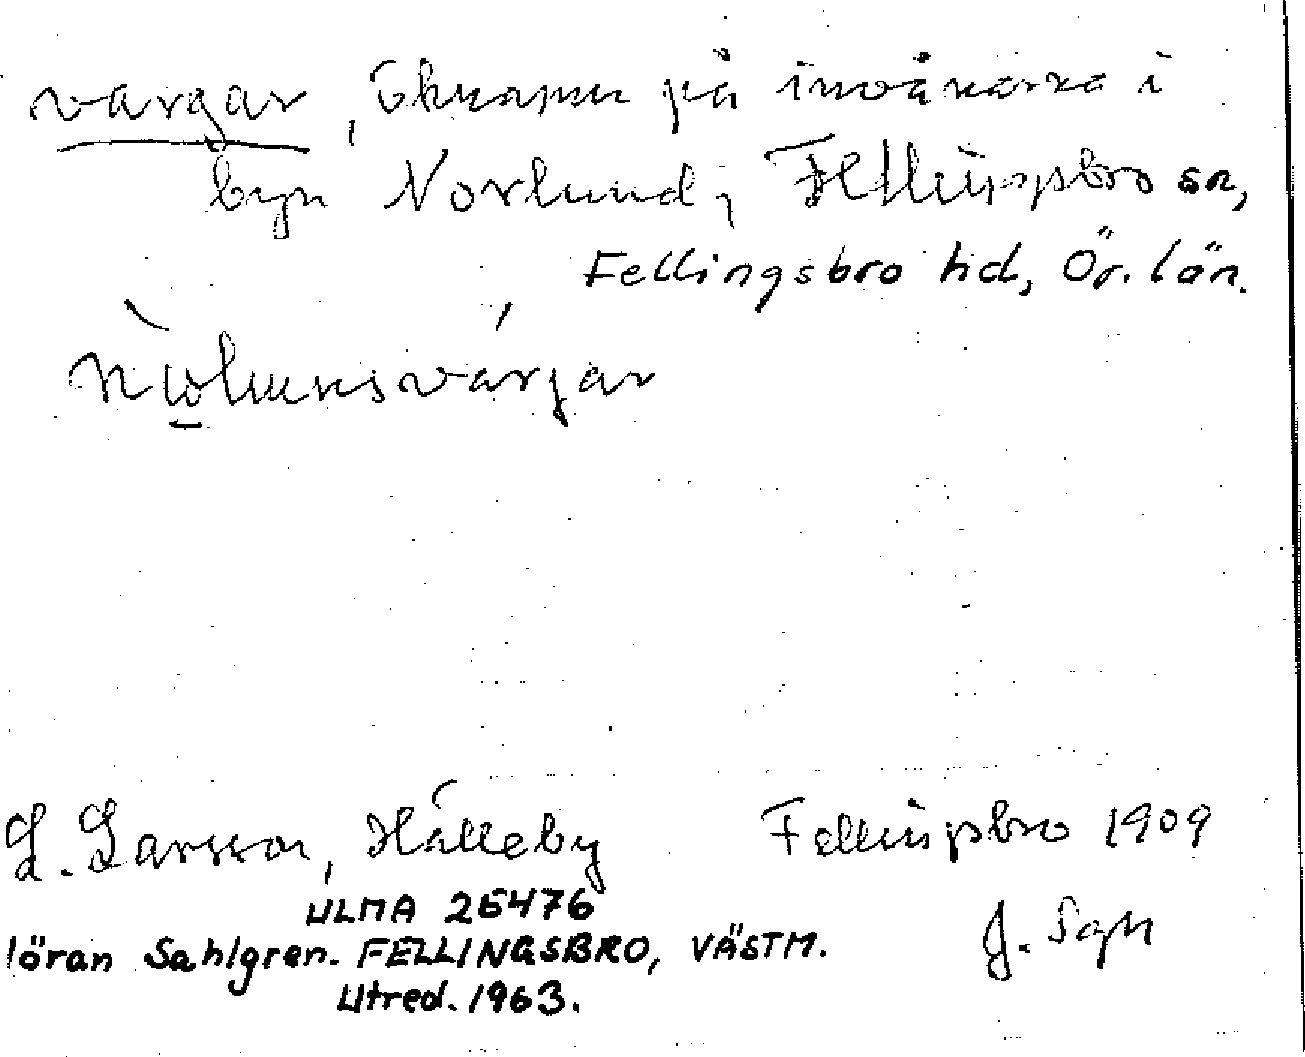 vargar, öknamn på invånarna i
byn Norlund i Fellingsbro sn,
Fellingsbro hd, Ör. län.
L. Larsson, Hälleby Fellingsbro 1909
ULMA 25476
löran Sahlgren. FELLINGSBRO, VÄSTM. J. Sgn
Utred. 1963.